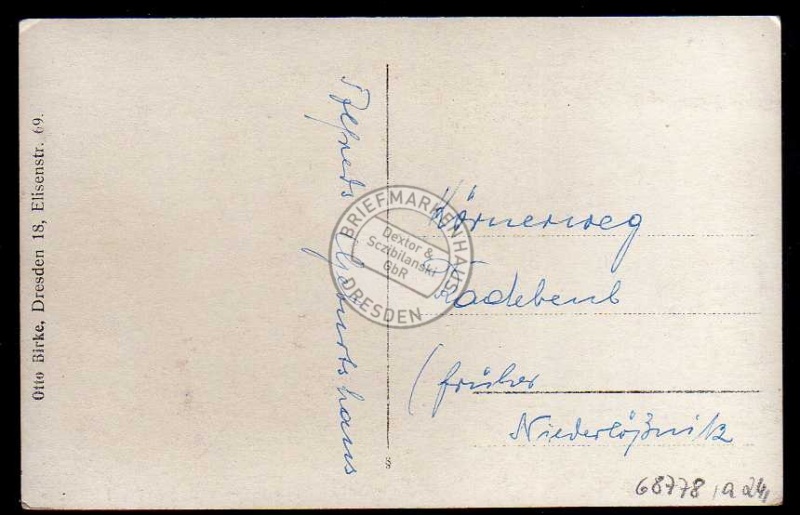 Otto Birke, Dresden 18, Elisenstr. 69.
Alfreds Geburtshaus
BRIEFMARKENHAUS
Dextor &
Sczibilanski
GbR
DRESDEN
Körnerweg
Radebeul
(früher
Niederlößnitz
68778